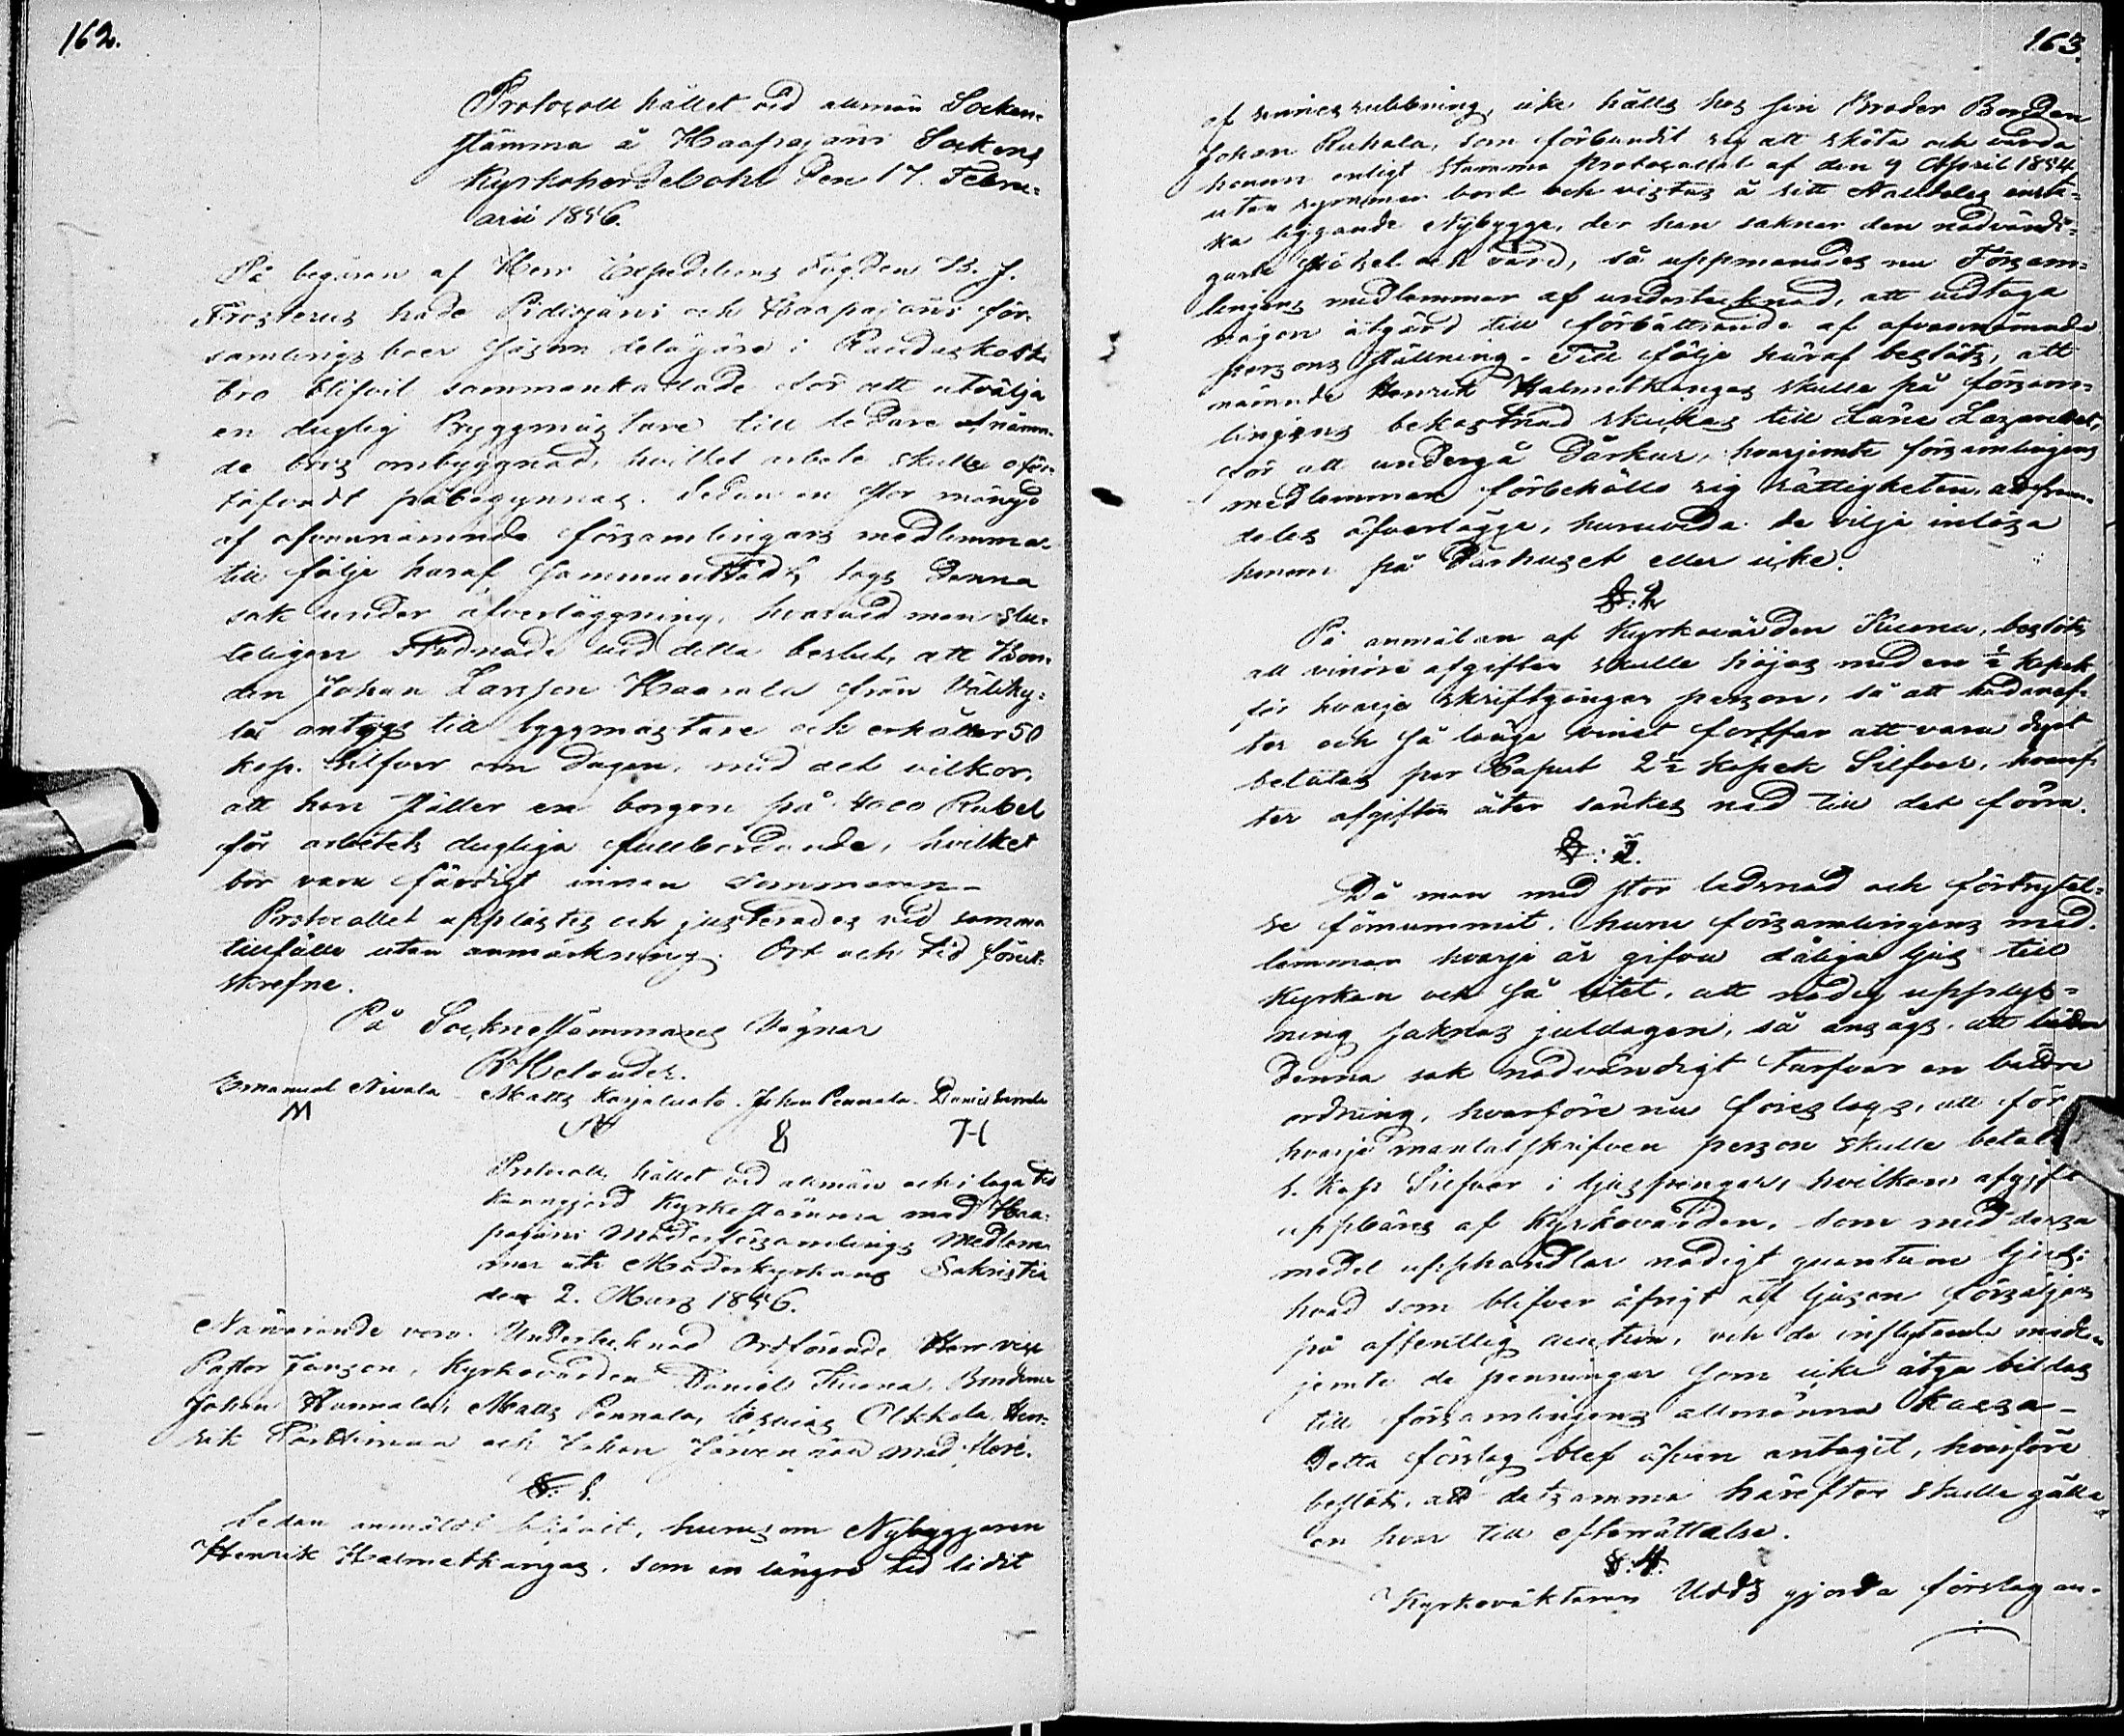 162.
Protocoll hållet vid allmän Socken-
stämma å Haapajärvi Sockens
Kyrkoherdebohl den 17. Febru-
arii 1856.
På begäran af Herr Expeditions Fogden B. J.
Frosterus hade Pidisjärvi och Haapajärvi för-
samlingsboer såsom delägare i Raudaskoski
bro blifvit sammankallade för att utvälja
en duglig Byggmästare till ledare af nämn-
de bros ombyggnad, hvilket arbete skulle oför-
töfvadt påbegynnas. Sedan en stor mängd
af ofvannämnde församlingars medlemmar
till följe häraf sammanträdt, togs denna
sak under öfverläggning, hvarvid man slu-
teligen stadnade vid detta beslut, att Bon-
den Johan Larsson Haarala från Väliky-
lä antogs till byggmästare och erhåller 50
kop. Silfver om dagen, med det vilkor,
att han ställer en borgen på 4000 Rubel
för arbetets dugliga fullbordande, hvilket
bör vara färdigt innan sommaren.
Protocollet upplästes och justerades vid samma
tillfälle utan anmärkning. Ort och tid föret-
skrefne.
På Sockenestämmans vägnar
Emanuel Nivala Matts Karjaluoto Johan Pennala Daniel
M
8
H
Protocoll, hållet vid allmän och i laga tid
kungjord Kyrkostämma med Haa-
pajärvi Moderförsamlings medlem-
mar uti Moderkyrkans Sakristia
den 2. Mars 1856.
Närvarande voro: Undertecknad Ordförande, Herr vice
Pastor Janson, Kyrkovärden Daniel Kuona, Bönderne
Johan Hannala, Matts Pennala, Esaias Olkkola, Hen-
rik Parkkimaa och Johan Järvenpää med flere.
§. 1.
Sedan anmäldt blifvit, hurusom Nybyggaren
Henrik Halmetkangas, som en längre tid lidit
163.
af sinnesrubbning, icke hålls hos sin Broder Bonden
Johan Ruhala, som förbundit sig att sköta och vårda
honom enligt stämmo protocollet af den 9 April 1854,
utan rymmer bort och vistas å sitt
ka liggande Nybygge, der han saknar den nödvändi-
gaste skötsel och vård, så uppmanades nu Försam-
lingens medlemmar af undertecknad, att vidtaga
någon åtgärd till förbättrande af ofvannämnde
persons ställning. Till följe häraf beslöts, att
nämnde Henrik Halmetkangas skulle på försam-
lingens bekostnad skickas till Läne Lazarettet,
för att undergå Dårkur, hvarjemte församlingens
medlemmar förbehöllo sig rättigheten, att fram-
deles öfverlägga, huruvida de vilja inlösa
honom på Dårhuset eller icke.
§. 2
På anmälan af Kyrkovärden Kuona, beslöts
att vinöre afgiften skulle höjas med en ½ kopek
för hvarje skriftgången person, så att hädanef-
ter och så länge vinet fortfar att vara dyrt
betalas per Caput 2½ kopek Silfver, hvaref-
ter afgiften åter sänkes ned till det förra.
§. 3.
Då man med stor ledsnad och förtrytel-
se förnummit, huru församlingens med-
lemmar hvarje år gifva dåliga ljus till
Kyrkan och så litet, att nödig upplys-
ning saknas juldagen, så ansågs, att
denna sak nödvändigt tarfvar en bättre
ordning, hvarföre nu föreslogs, att för
hvarje mantalskrifven person skulle betalas
1. kop. Silfver i ljuspengar, hvilken afgift
uppbäres af Kyrkovärden, som med dessa
medel upphandlar nödigt quantum ljus;
hvad som blifver öfrigt af ljusen försäljes
på offentlig auction, och de inflytande medlen
jemte de penningar som icke åtgå bildas
till församlingens allmänna kassa.
Detta förslag blef äfven antaget, hvarföre
beslöts, att detsamma härefter skulle gälla
en hvar till efterrättelse.
§. 4.
Kyrkoväktaren Udds gjorda förslag an-